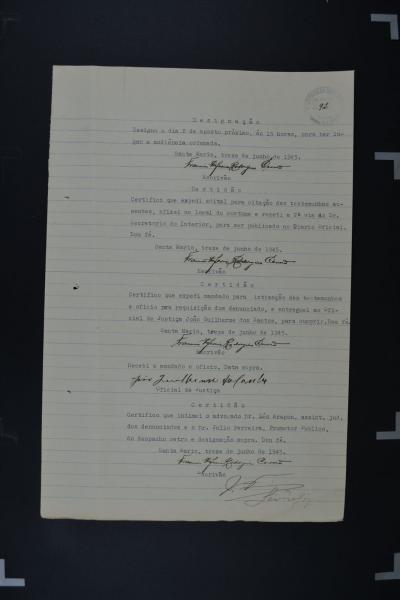 92
D e s i g n a ç ã o
Designo o dia 2 de agosto próximo, ás 15 horas, para ter lu-
gar a audiência ordenada.
Santa Maria, treze de junho de 1945.
Escrivão
C e r t i d ã o
Certifico que expedi edital para citação das testemunhas au-
sentes, afixei no local do costume e remeti a 2ª via ao Dr.
Secretario do Interior, para ser publicado no Diario Oficial.
Dou fé.
Santa Maria, treze de junho de 1945.
Escrivão
C e r t i d ã o
Certifico que expedi mandado para intimação das testemunhas
e oficio para requisição dos denunciado, e entreguei ao Ofi-
cial de Justiça João Guilherme dos Santos, para cumprir. Dou fé.
Santa Maria, treze de junho de 1945.
Escrivão
Recebi o mandado e oficio. Data supra.
João Guilherme dos Santos
Oficial de Justiça
C e r t i d ã o
Certifico que intimei o advogado Dr. Léo Aragon, assist. jud.
dos denunciados e o Dr. Julio Ferreira, Promotor Publico,
do despacho retro e designação supra. Dou fé.
Santa Maria, treze de junho de 1945.
Escrivão